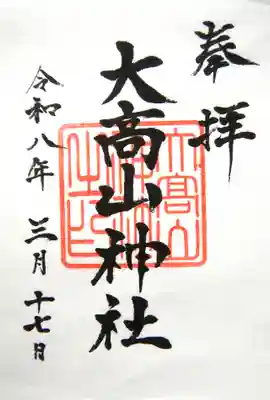 奉拝
大高山神社
令和八年 三月 十七日